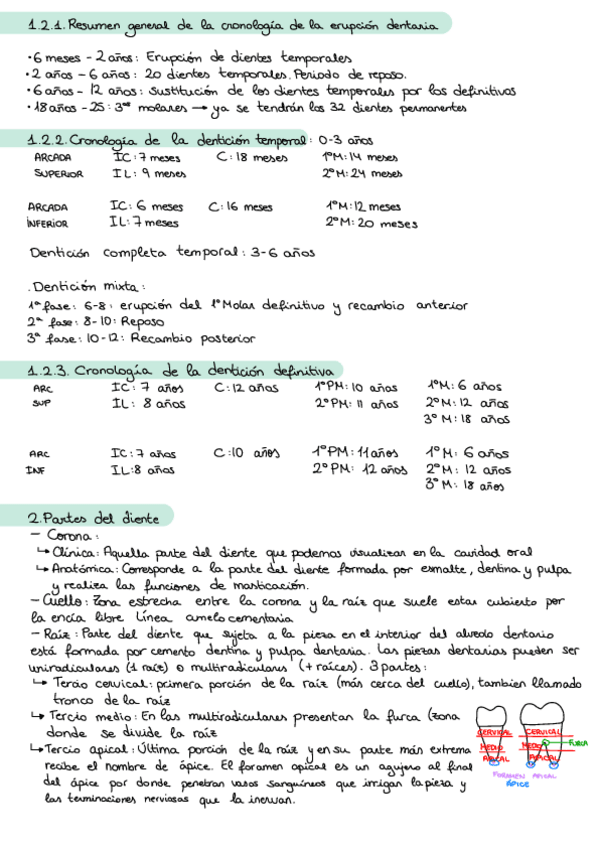 1.2.1. Resumen general de la cronología de la erupción dentaria
· 6 meses - 2 años: Erupción de dientes temporales
· 2 años - 6 años: 20 dientes temporales. Periodo de reposo.
· 6 años - 12 años: Sustitución de los dientes temporales por los definitivos
· 18 años - 25: 3os molares → ya se tendrán los 32 dientes permanentes
1.2.2. Cronología de la dentición temporal: 0-3 años
ARCADA IC: 7 meses C: 18 meses 1ºM: 14 meses
SUPERIOR IL: 9 meses 2ºM: 24 meses
ARCADA IC: 6 meses C: 16 meses 1ºM: 12 meses
INFERIOR IL: 7 meses 2ºM: 20 meses
Dentición completa temporal: 3-6 años
. Dentición mixta:
1ª fase: 6-8: erupción del 1º Molar definitivo y recambio anterior
2ª fase: 8-10: Reposo
3ª fase: 10-12: Recambio posterior
1.2.3. Cronología de la dentición definitiva
ARC IC: 7 años C: 12 años 1ºPM: 10 años 1ºM: 6 años
SUP IL: 8 años 2ºPM: 11 años 2ºM: 12 años
3ºM: 18 años
ARC IC: 7 años C: 10 años 1ºPM: 11 años 1ºM: 6 años
INF IL: 8 años 2ºPM: 12 años 2ºM: 12 años
3ºM: 18 años
2. Partes del diente
- Corona:
↳ Clínica: Aquella parte del diente que podemos visualizar en la cavidad oral
↳ Anatómica: Corresponde a la parte del diente formada por esmalte, dentina y pulpa
y realiza las funciones de masticación.
- Cuello: Zona estrecha entre la corona y la raíz que suele estar cubierto por
la encía libre Línea amelocementaria
- Raíz: Parte del diente que sujeta a la pieza en el interior del alveolo dentario
está formada por cemento dentina y pulpa dentaria. Las piezas dentarias pueden ser
uniradiculares (1 raíz) o multiradiculares (+ raíces). 3 partes:
↳ Tercio cervical: primera porción de la raíz (más cerca del cuello), tambien llamado
tronco de la raíz
↳ Tercio medio: En las multiradiculares presentan la furca (zona
donde se divide la raíz
↳ Tercio apical: Última porción de la raíz y en su parte más extrema
recibe el nombre de ápice. El foramen apical es un agujero al final
del ápice por donde penetran vasos sanguíneos que irrigan la pieza y
las terminaciones nerviosas que la inervan.
CERVICAL CERVICAL
MEDIO MEDIO FURCA
APICAL APICAL
FORAMEN APICAL
ÁPICE